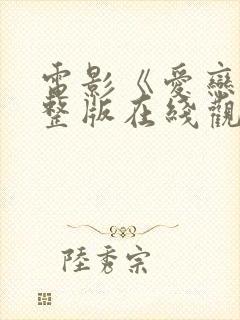 電影《愛戀
整版在綫觀
陸秀宗